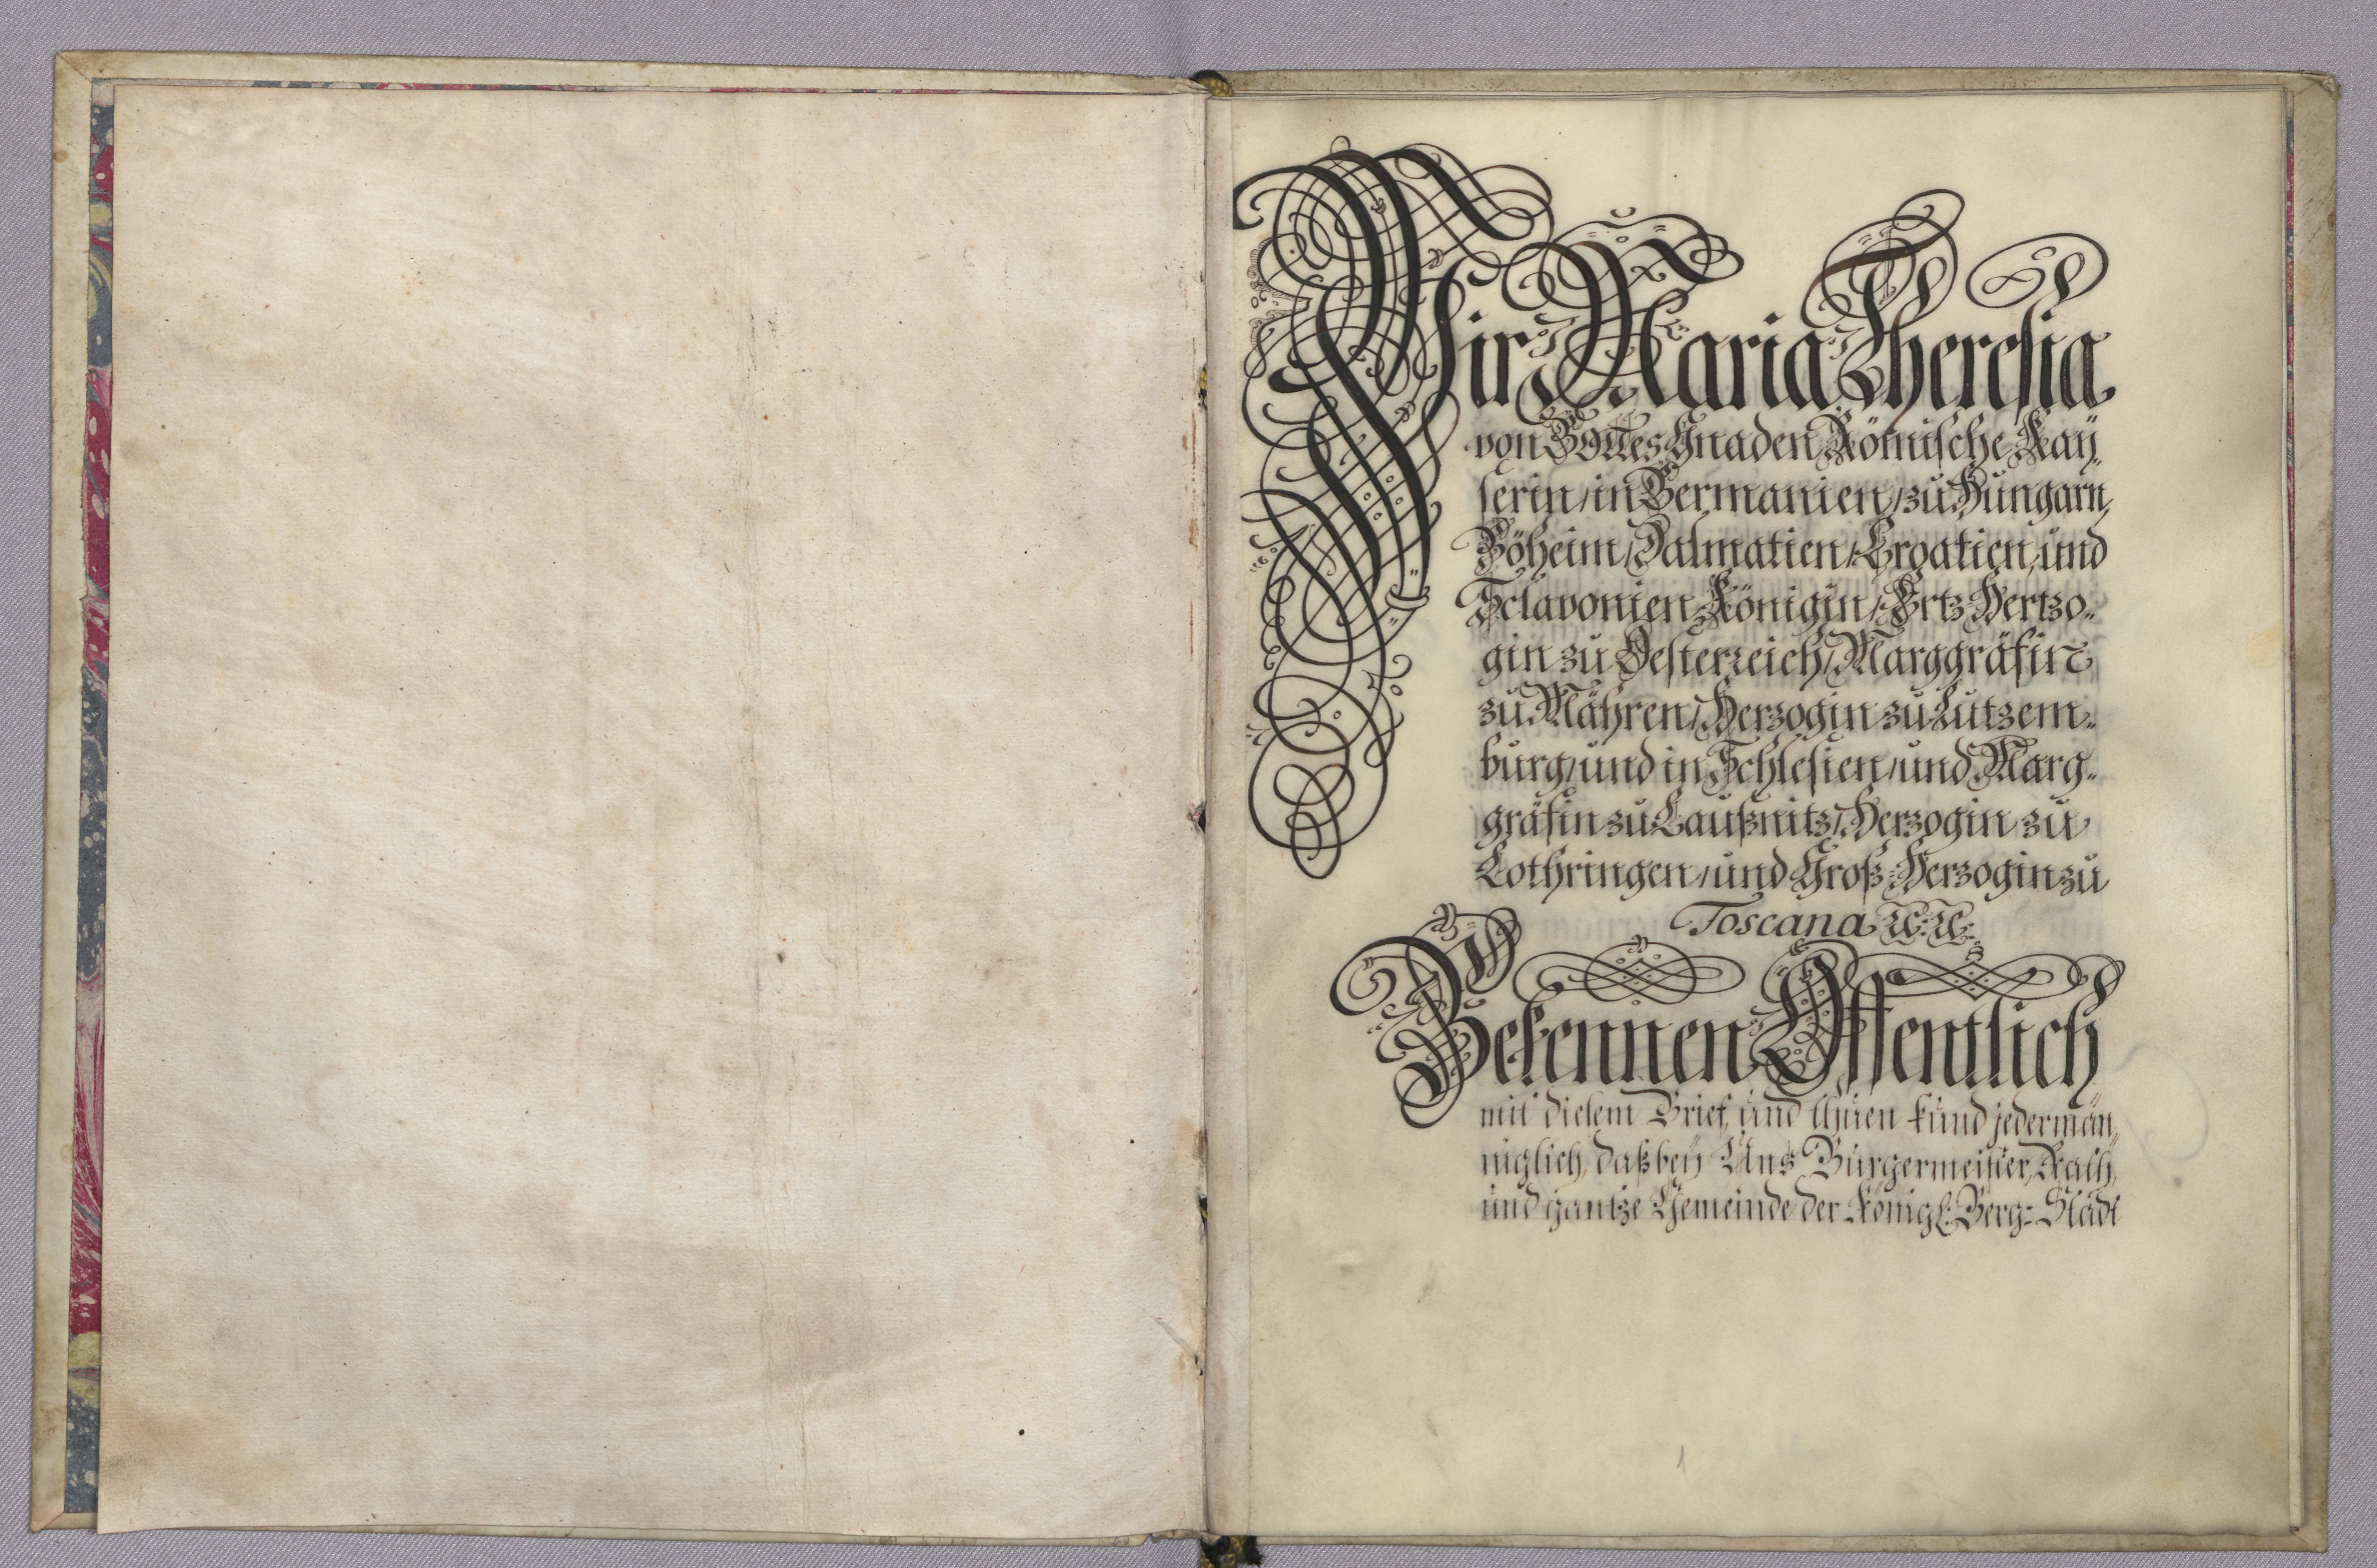 Wir Maria Theresia
von GOttes Gnaden Römische Kaÿ„
serin, in Germanien, zu Hungarn,
Böheim, Dalmatien, Croatien, und
Sclavonien Königin, Ertz-Hertzo„
gin zu Oesterreich, Marggräfin
zu Mähren, Herzogin zu Lutzem„
burg, und in Schlesien, und Marg„
gräfin zu Laußnitz, Herzogin zu
Lothringen, und Groß-Herzogin zu
Toscana ⁊c. ⁊c.
Bekennen Öffentlich
mit diesem Brief, und thuen kund jedermän„
niglich, daß beÿ Uns Burgermeister, Rath,
und gantze Gemeinde der Königl: Berg-Stadt
1